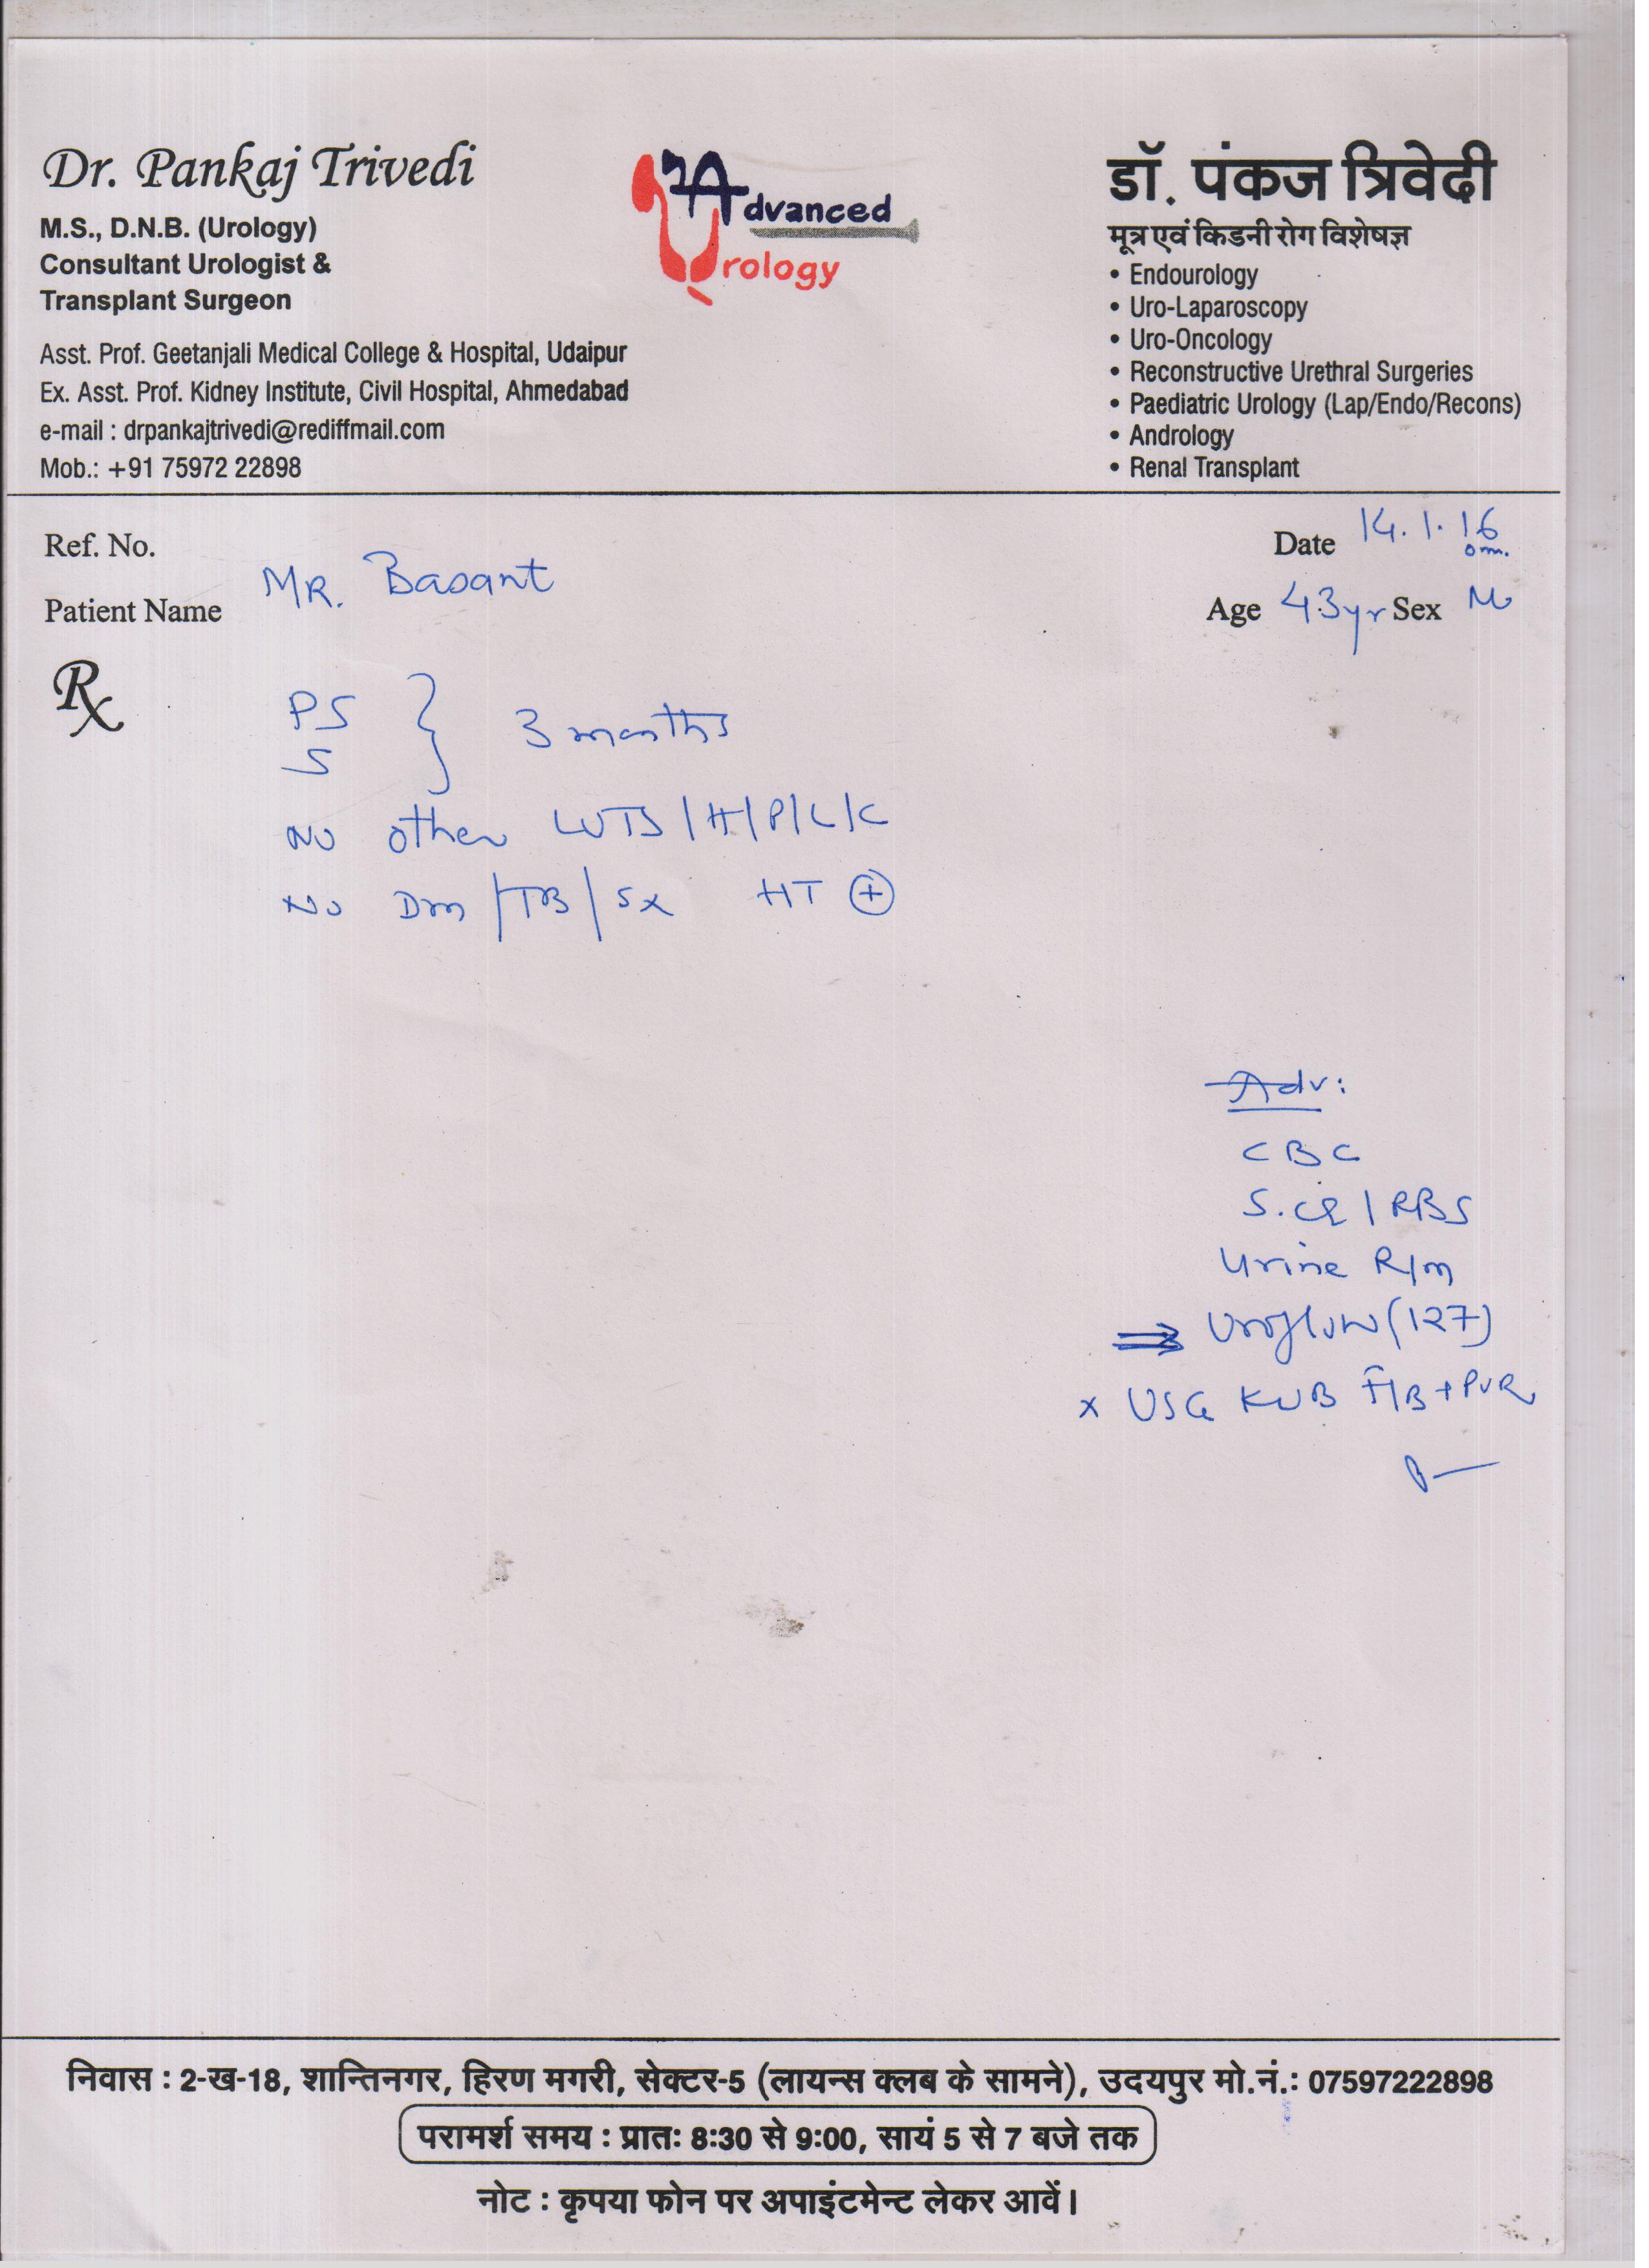 Dr. Pankaj Trivedi
M.S., D.N.B. (Urology)
Consultant Urologist &
Transplant Surgeon
Asst. Prof. Geetanjali Medical College & Hospital, Udaipur
Ex. Asst. Prof. Kidney Institute, Civil Hospital, Ahmedabad
e-mail : drpankajtrivedi@rediffmail.com
Mob.: +91 75972 22898
Advanced
Urology
डॉ. पंकज त्रिवेदी
मूत्र एवं किडनी रोग विशेषज्ञ
• Endourology
• Uro-Laparoscopy
• Uro-Oncology
• Reconstructive Urethral Surgeries
• Paediatric Urology (Lap/Endo/Recons)
• Andrology
• Renal Transplant
Ref. No.
Date 14.1.16
Patient Name MR. Basant
Age 43yr Sex M
Rx
PS
S } 3 months
No other LUTS/H/P/L/C
No Dm/TB/Sx HT ⊕
Adv:
CBC
S.CR / RBS
Urine R/m
⇒ Uroflow (127)
x USG KUB F/B + PVR
निवास : 2-ख-18, शान्तिनगर, हिरण मगरी, सेक्टर-5 (लायन्स क्लब के सामने), उदयपुर मो.नं.: 07597222898
परामर्श समय : प्रातः 8:30 से 9:00, सायं 5 से 7 बजे तक
नोट : कृपया फोन पर अपाइंटमेन्ट लेकर आवें।